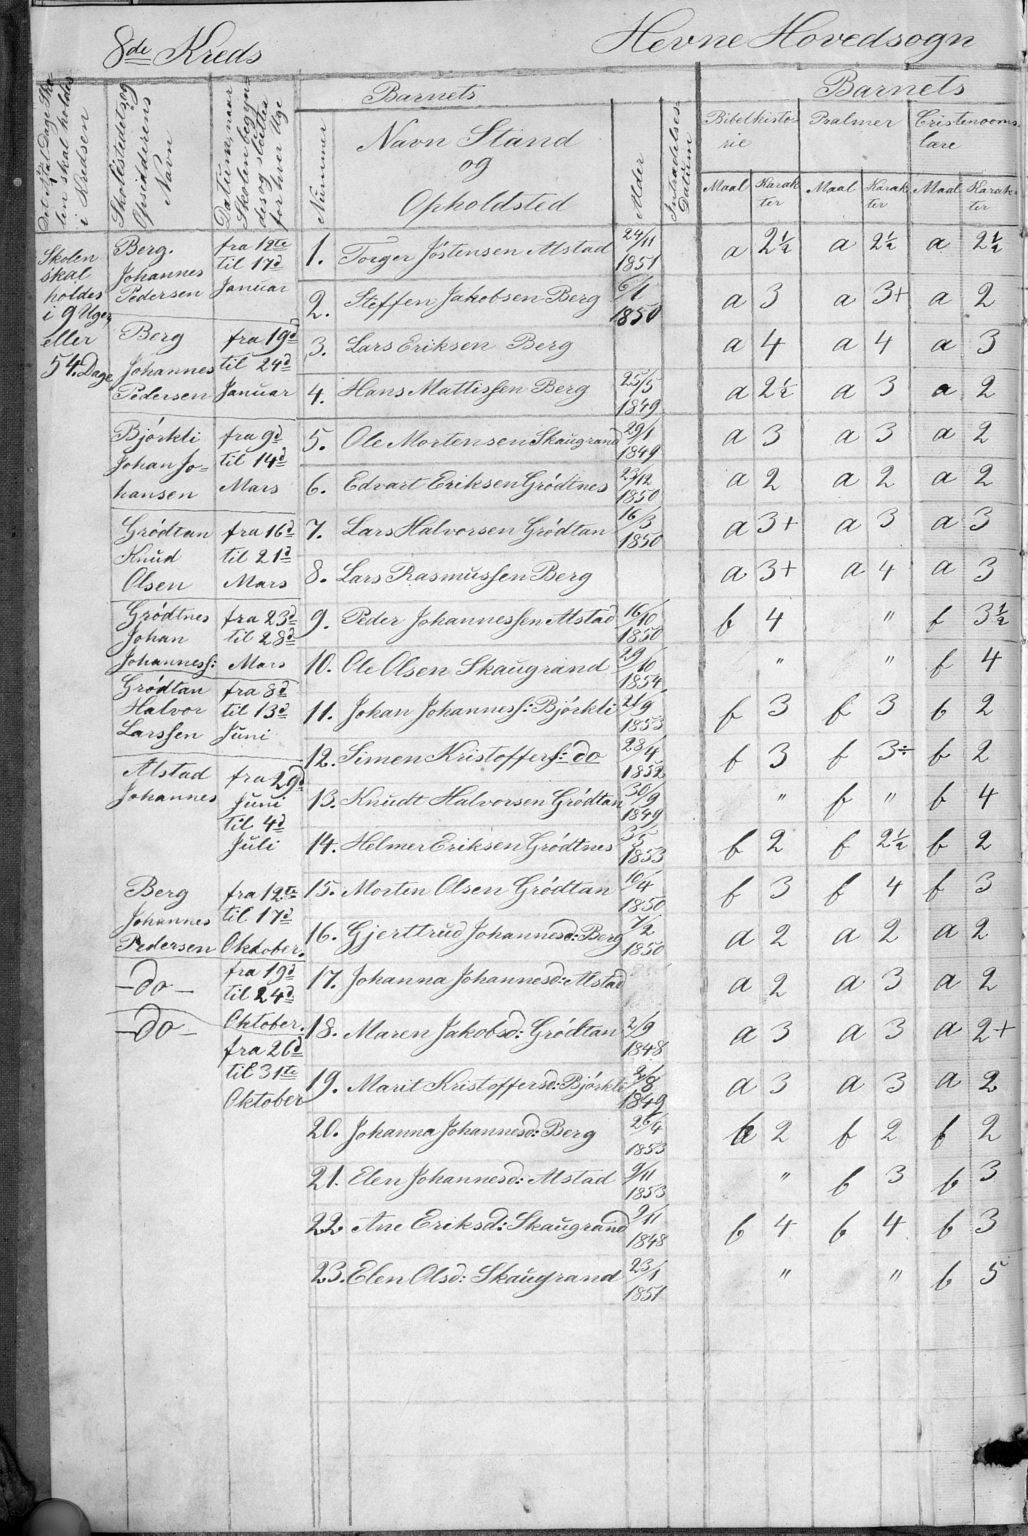 8de Kreds
Hevne Hovedsogn
Det Antal Dage Sko-
len skal holdes
i Kredsen
Skolestedet og
Opsidderens
Navn
Datum, naar
Skolen begyn-
des og sluttes
for hver Uge
Barnets
Nummer
Navn Stand
og
Opholdsted
Alder
Indtrædelses
Datum
Barnets
Bibelhisto-
rie
Psalmer
Cristendoms-
lære
Maal Karak-
ter
Maal Karak-
ter
Maal Karak-
ter
Skolen
skal
holdes
i 9 Uger
eller
54 Dage
Berg.
Johannes
Pedersen
fra 12te
til 17d
Januar
Berg
Johannes
Pedersen
fra 19d
til 24d
Januar
Bjórkli
Johan Jo-
hansen
fra 9d
til 14d
Mars
Gródtan
Knud
Olsen
fra 16d
til 21d
Mars
Gródtnes
Johan
Johannesf:
fra 23d
til 28d
Mars
Gródtan
Halvor
Larssen
fra 8d
til 13d
Juni
Alstad
Johannes
fra 29d
Juni
til 4d
Juli
Berg
Johannes
Pedersen
fra 12te
til 17d
Oktober.
—do—
fra 19d
til 24d
Oktober.
—do—
fra 26d
til 31te
Oktober
1. Torger Jóstensen Alstad 24/11 1851 a 2½ a 2½ a 2½
2. Steffen Jakobsen Berg 6/1 1850 a 3 a 3+ a 2
3. Lars Eriksen Berg a 4 a 4 a 3
4. Hans Mattissen Berg 25/5 1849 a 2½ a 3 a 2
5. Ole Mortensen Skaugrand 29/1 1849 a 3 a 3 a 2
6. Edvart Eriksen Gródtnes 23/12 1850 a 2 a 2 a 2
7. Lars Halvorsen Gródtan 16/3 1850 a 3+ a 3 a 3
8. Lars Rasmussen Berg a 3+ a 4 a 3
9. Peder Johannessen Alstad 16/10 1850 b 4 " b 3½
10. Ole Olsen Skaugrand 29/10 1854 " " b 4
11. Johan Johannesf: Bjórkli 21/9 1853 b 3 b 3 b 2
12. Simen Kristofferf: do 28/4 1852 b 3 b 3÷ b 2
13. Knudt Halvorsen Gródtan 30/9 1849 " b " b 4
14. Helmer Eriksen Gródtnes 3/5 1853 b 2 b 2½ b 2
15. Morten Olsen Gródtan 10/4 1850 b 3 b 4 b 3
16. Gjerttrud Johannesd: Berg 7/2 1850 a 2 a 2 a 2
17. Johanna Johannesd: Alstad a 2 a 3 a 2
18. Maren Jakobsd: Gródtan 2/9 1848 a 3 a 3 a 2+
19. Marit Kristoffersd: Bjórkli 2/8 1849 a 3 a 3 a 2
20. Johanna Johannesd: Berg 26/4 1853 b 2 b 2 b 2
21. Elen Johannesd: Alstad 9/11 1853 " b 3 b 3
22 Ane Eriksd: Skaugrand 2/11 1848 b 4 b 4 b 3
23. Elen Olsd: Skaugrand 23/1 1851 " " b 5